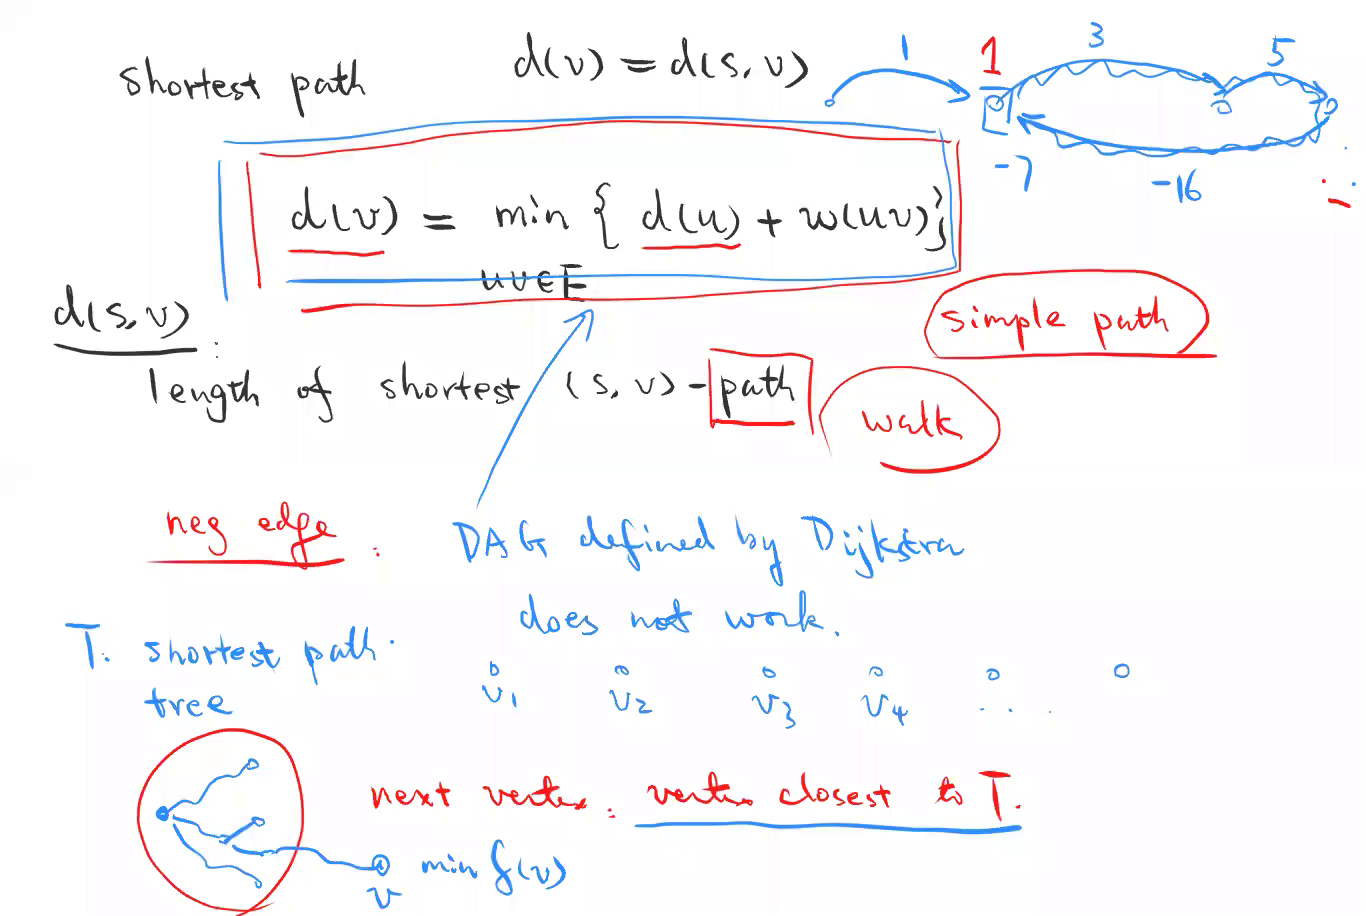 shortest path
d(v) = d(s, v)
1
1
3
5
-7
-16
d(v) = min { d(u) + w(uv)}
uv∈E
d(s, v) :
length of shortest (s, v) - path
simple path
walk
neg edge :
DAG defined by Dijkstra
does not work.
T. shortest path
tree
v1 v2 v3 v4 ...
next vertex : vertex closest to T.
v
min f(v)